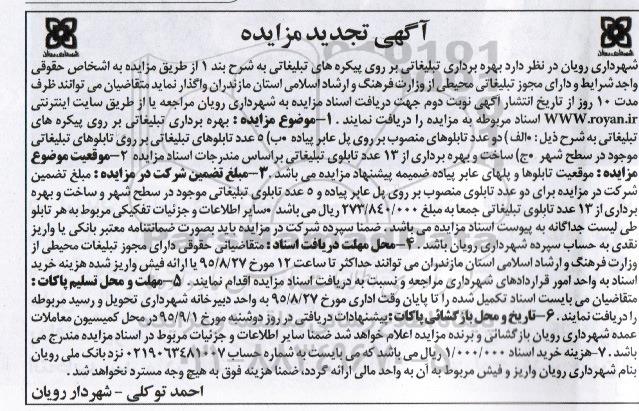 آگهی تجدید مزایده
شهرداری رویان در نظر دارد بهره برداری تبلیغاتی بر روی پیکره های تبلیغاتی به شرح بند ۱ از طریق مزایده به اشخاص حقوقی
واجد شرایط و دارای مجوز تبلیغاتی محیطی از وزارت فرهنگ و ارشاد اسلامی استان مازندران واگذار نماید متقاضیان می توانند ظرف
مدت ۱۰ روز از تاریخ انتشار آگهی نوبت دوم جهت دریافت اسناد مزایده به شهرداری رویان مراجعه یا از طریق سایت اینترنتی
WWW.royan.ir اسناد مربوطه به مزایده را دریافت نمایند . ۱-موضوع مزایده : بهره برداری تبلیغاتی بر روی پیکره های
تبلیغاتی به شرح ذیل : «الف) دو عدد تابلوهای منصوب بر روی پل عابر پیاده «ب) ۵ عدد تابلوهای تبلیغاتی بر روی تابلوهای تبلیغاتی
موجود در سطح شهر «ج) ساخت و بهره برداری از ۱۳ عدد تابلوی تبلیغاتی براساس مندرجات اسناد مزایده ۲-موقعیت موضوع
مزایده : موقعیت تابلوها و پلهای عابر پیاده ضمیمه پیشنهاد مزایده می باشد .۳-مبلغ تضمین شرکت در مزایده : مبلغ تضمین
شرکت در مزایده برای دو عدد تابلوی منصوب بر روی پل عابر پیاده و ۵ عدد تابلوی تبلیغاتی موجود در سطح شهر و ساخت و بهره
برداری از ۱۳ عدد تابلوی تبلیغاتی جمعا به مبلغ ۲۷۳/۸۴۰/۰۰۰ ریال می باشد .«سایر اطلاعات و جزئیات تفکیکی مربوط به هر تابلو
طی لیست جداگانه به پیوست اسناد مزایده می باشد . ضمنا سپرده شرکت در مزایده باید بصورت ضمانتنامه معتبر بانکی یا واریز
نقدی به حساب سپرده شهرداری رویان باشد . ۴-محل مهلت دریافت اسناد : متقاضیانی حقوقی دارای مجوز تبلیغات محیطی از
وزارت فرهنگ و ارشاد اسلامی استان مازندران می توانند حداکثر تا ساعت ۱۲ مورخ ۹۵/۸/۲۷ با ارائه فیش واریز شده هزینه خرید
اسناد به واحد امور قراردادهای شهرداری مراجعه و نسبت به دریافت اسناد مزایده اقدام نمایند . ۵-مهلت و محل تسلیم پاکات :
متقاضیان می بایست اسناد تکمیل شده را تا پایان وقت اداری مورخ ۹۵/۸/۲۷ به واحد دبیرخانه شهرداری تحویل و رسید مربوطه
را دریافت نمایند . ۶-تاریخ و محل بازگشائی پاکات : پیشنهادات دریافتی در روز دوشنبه مورخ ۹۵/۹/۱ در محل کمیسیون معاملات
عمده شهرداری رویان بازگشائی و برنده مزایده اعلام خواهد شد ضمنا سایر اطلاعات و جزئیات مربوط در اسناد مزایده مندرج می
باشد . ۷-هزینه خرید اسناد ۱/۰۰۰/۰۰۰ ریال می باشد که می بایست به شماره حساب ۰۲۱۹۰۶۳۴۸۱۰۰۷ نزد بانک ملی رویان
بنام شهرداری رویان واریز و فیش مربوط به آن به واحد مالی ارائه گردد، ضمنا هزینه فوق به هیچ وجه مسترد نخواهد شد .
احمد توکلی - شهردار رویان